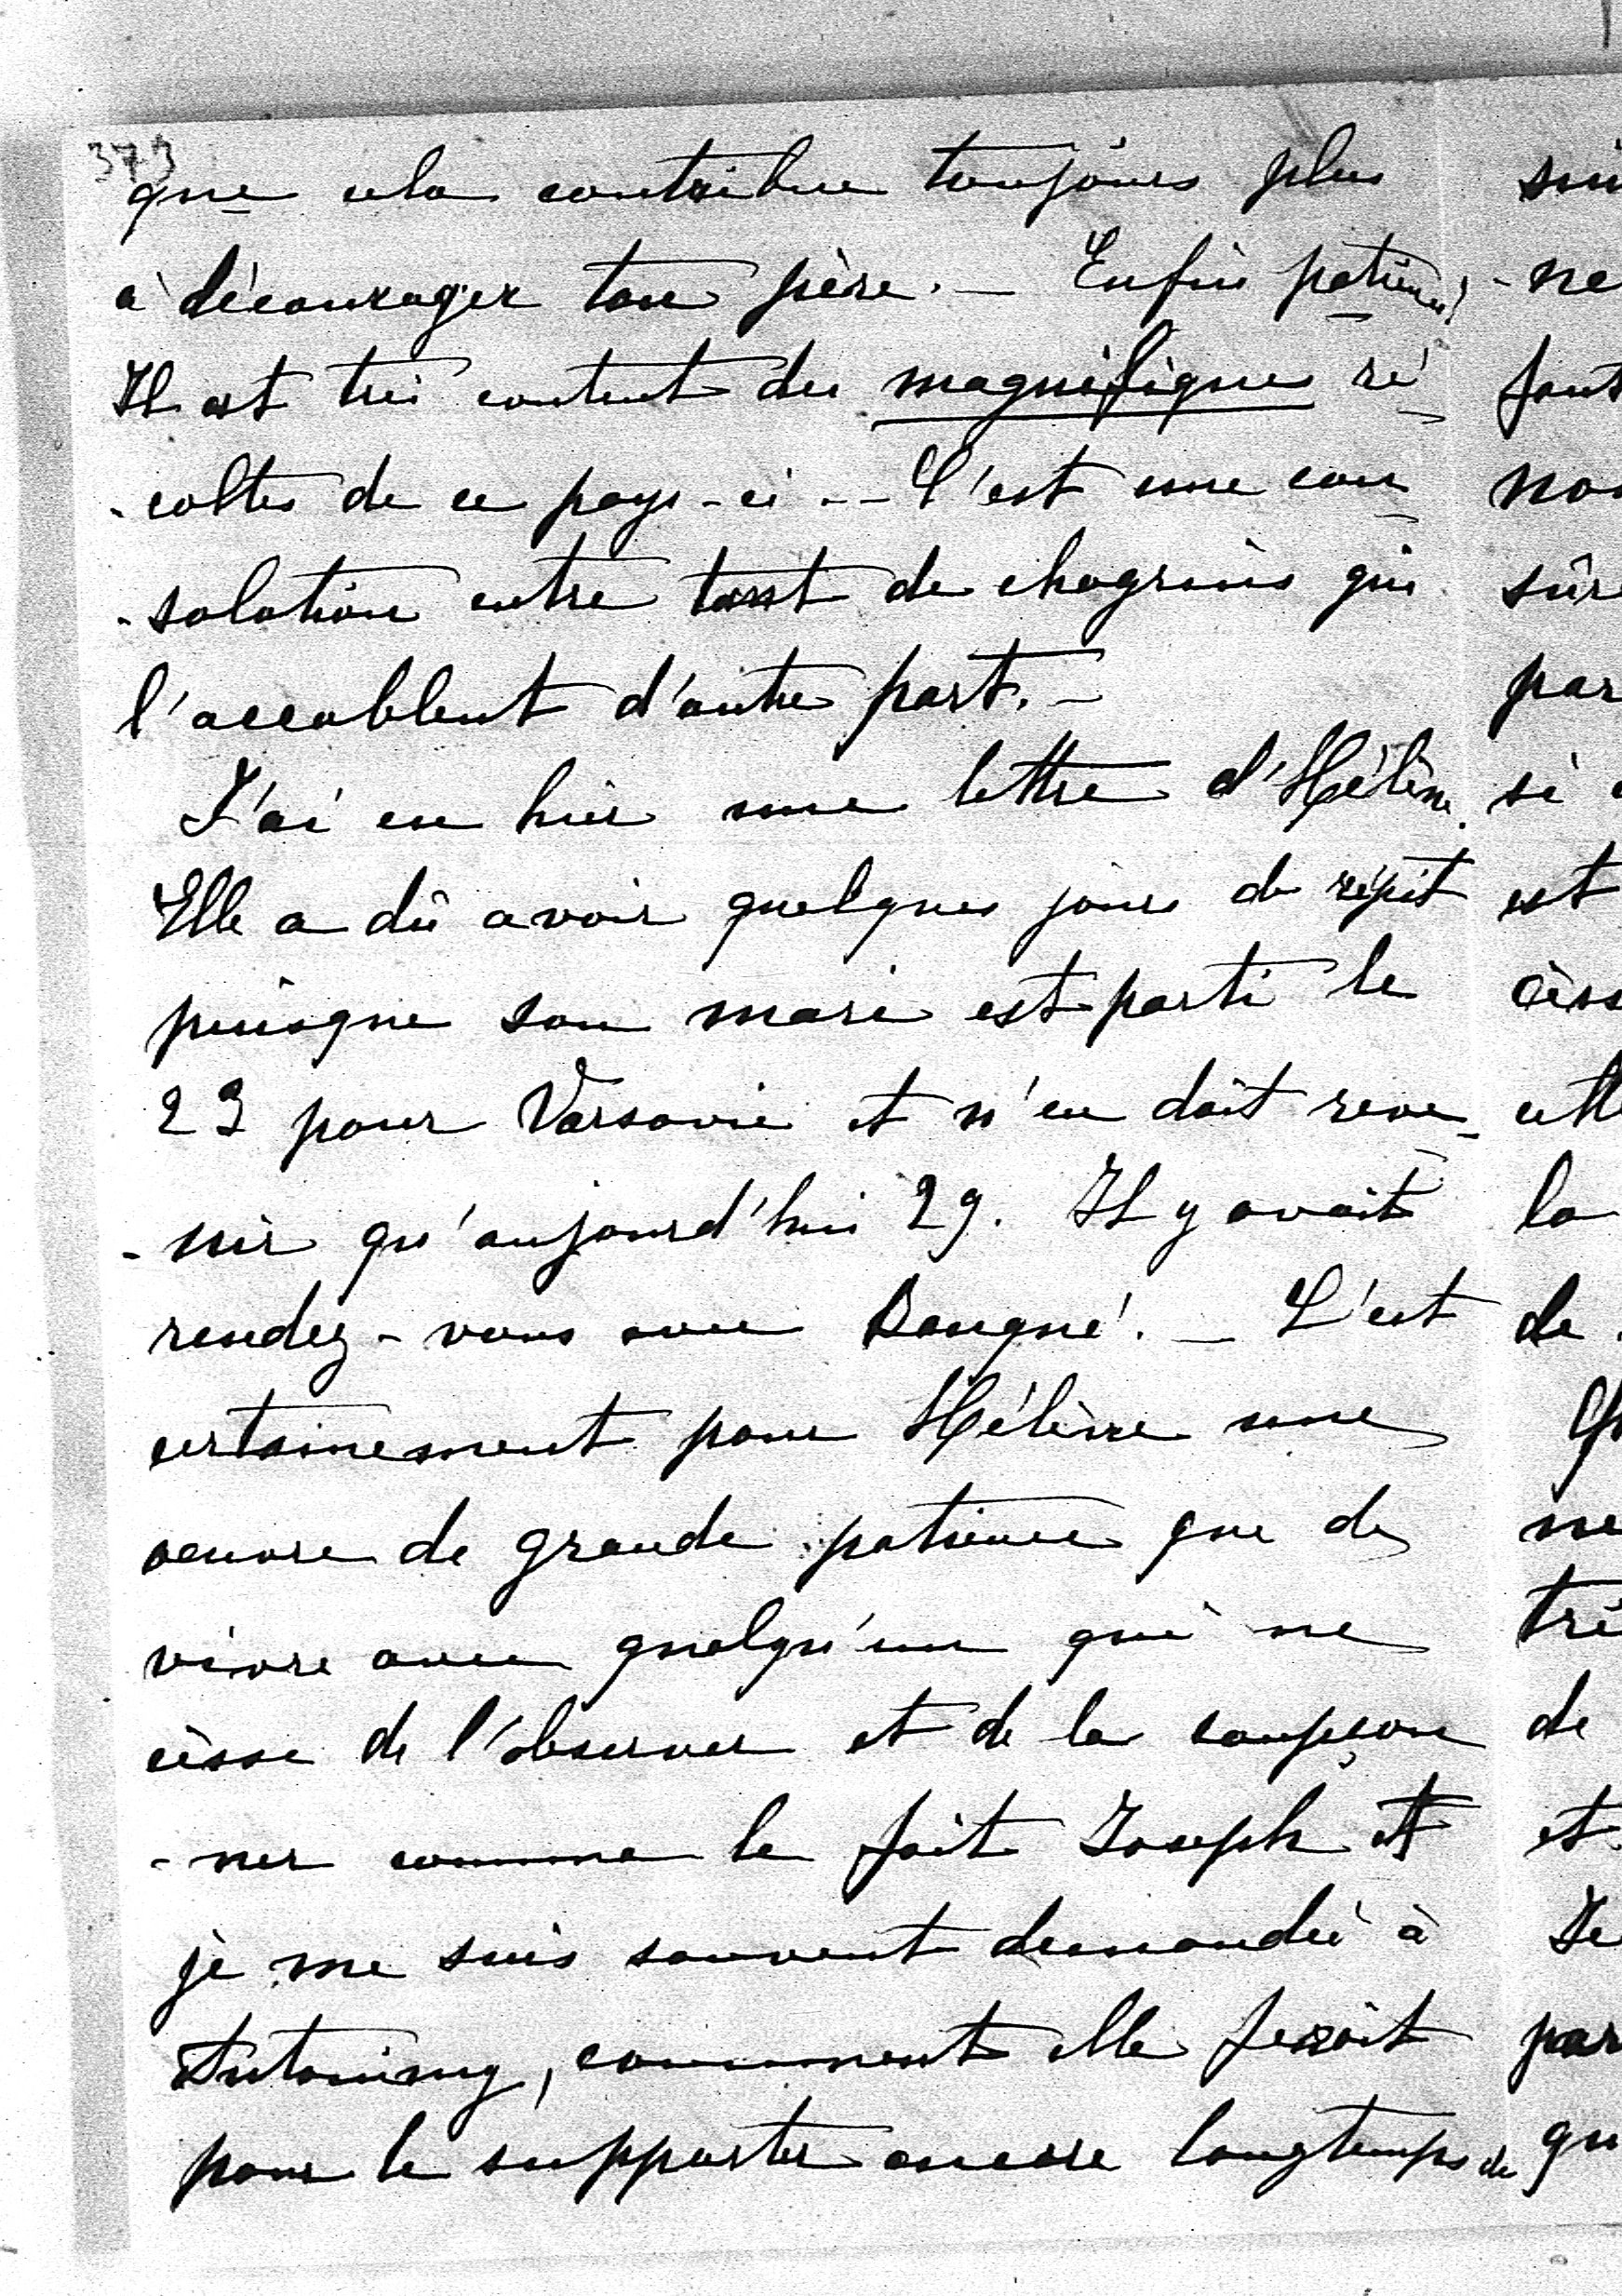 373
que cela contribue toujours plus
à décourager ton père. — Enfin patience!
Il est très content des magnifiques ré
-coltes de ce pays-ci. — C'est une con
-solation entre tant de chagrins qui
l'accablent d'autre part. —
J'ai eu hier une lettre d'Hélène.
Elle a dû avoir quelques jours de répit
puisque son mari est parti le
23 pour Varsovie et n'en doit reve-
-nir qu'aujourd'hui 29. Il y avait
rendez-vous avec . — C'est
certainement pour Hélène une
oeuvre de grande patience que de
vivre avec quelqu'un qui ne
cesse de l'observer et de la soupçon
-ner comme le fait Joseph et
je me suis souvent demandée à
Antoniny, comment elle ferait
pour le supporter encore longtemps de